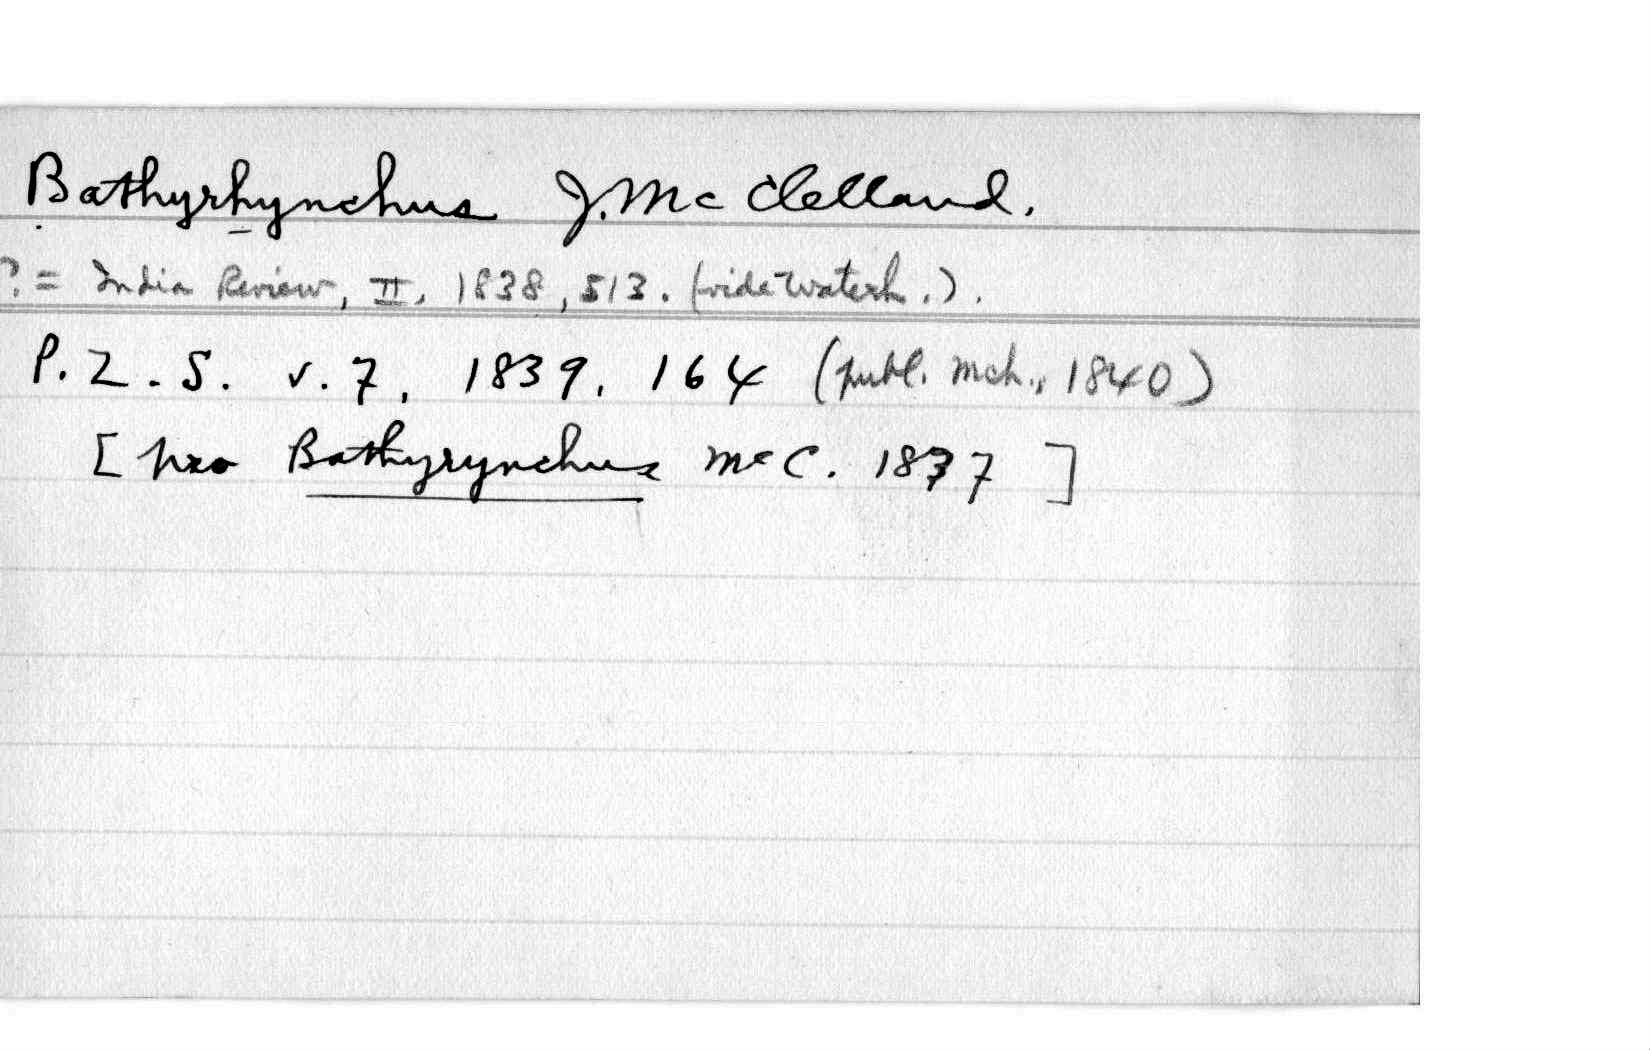 Bathyrhynchus J. McClelland.
? = India Review, II, 1838, 513. (vide Waterh.).
P. Z. S. v. 7, 1839, 164 (publ. Mch., 1840)
[pro Bathyrynchus McC. 1837]